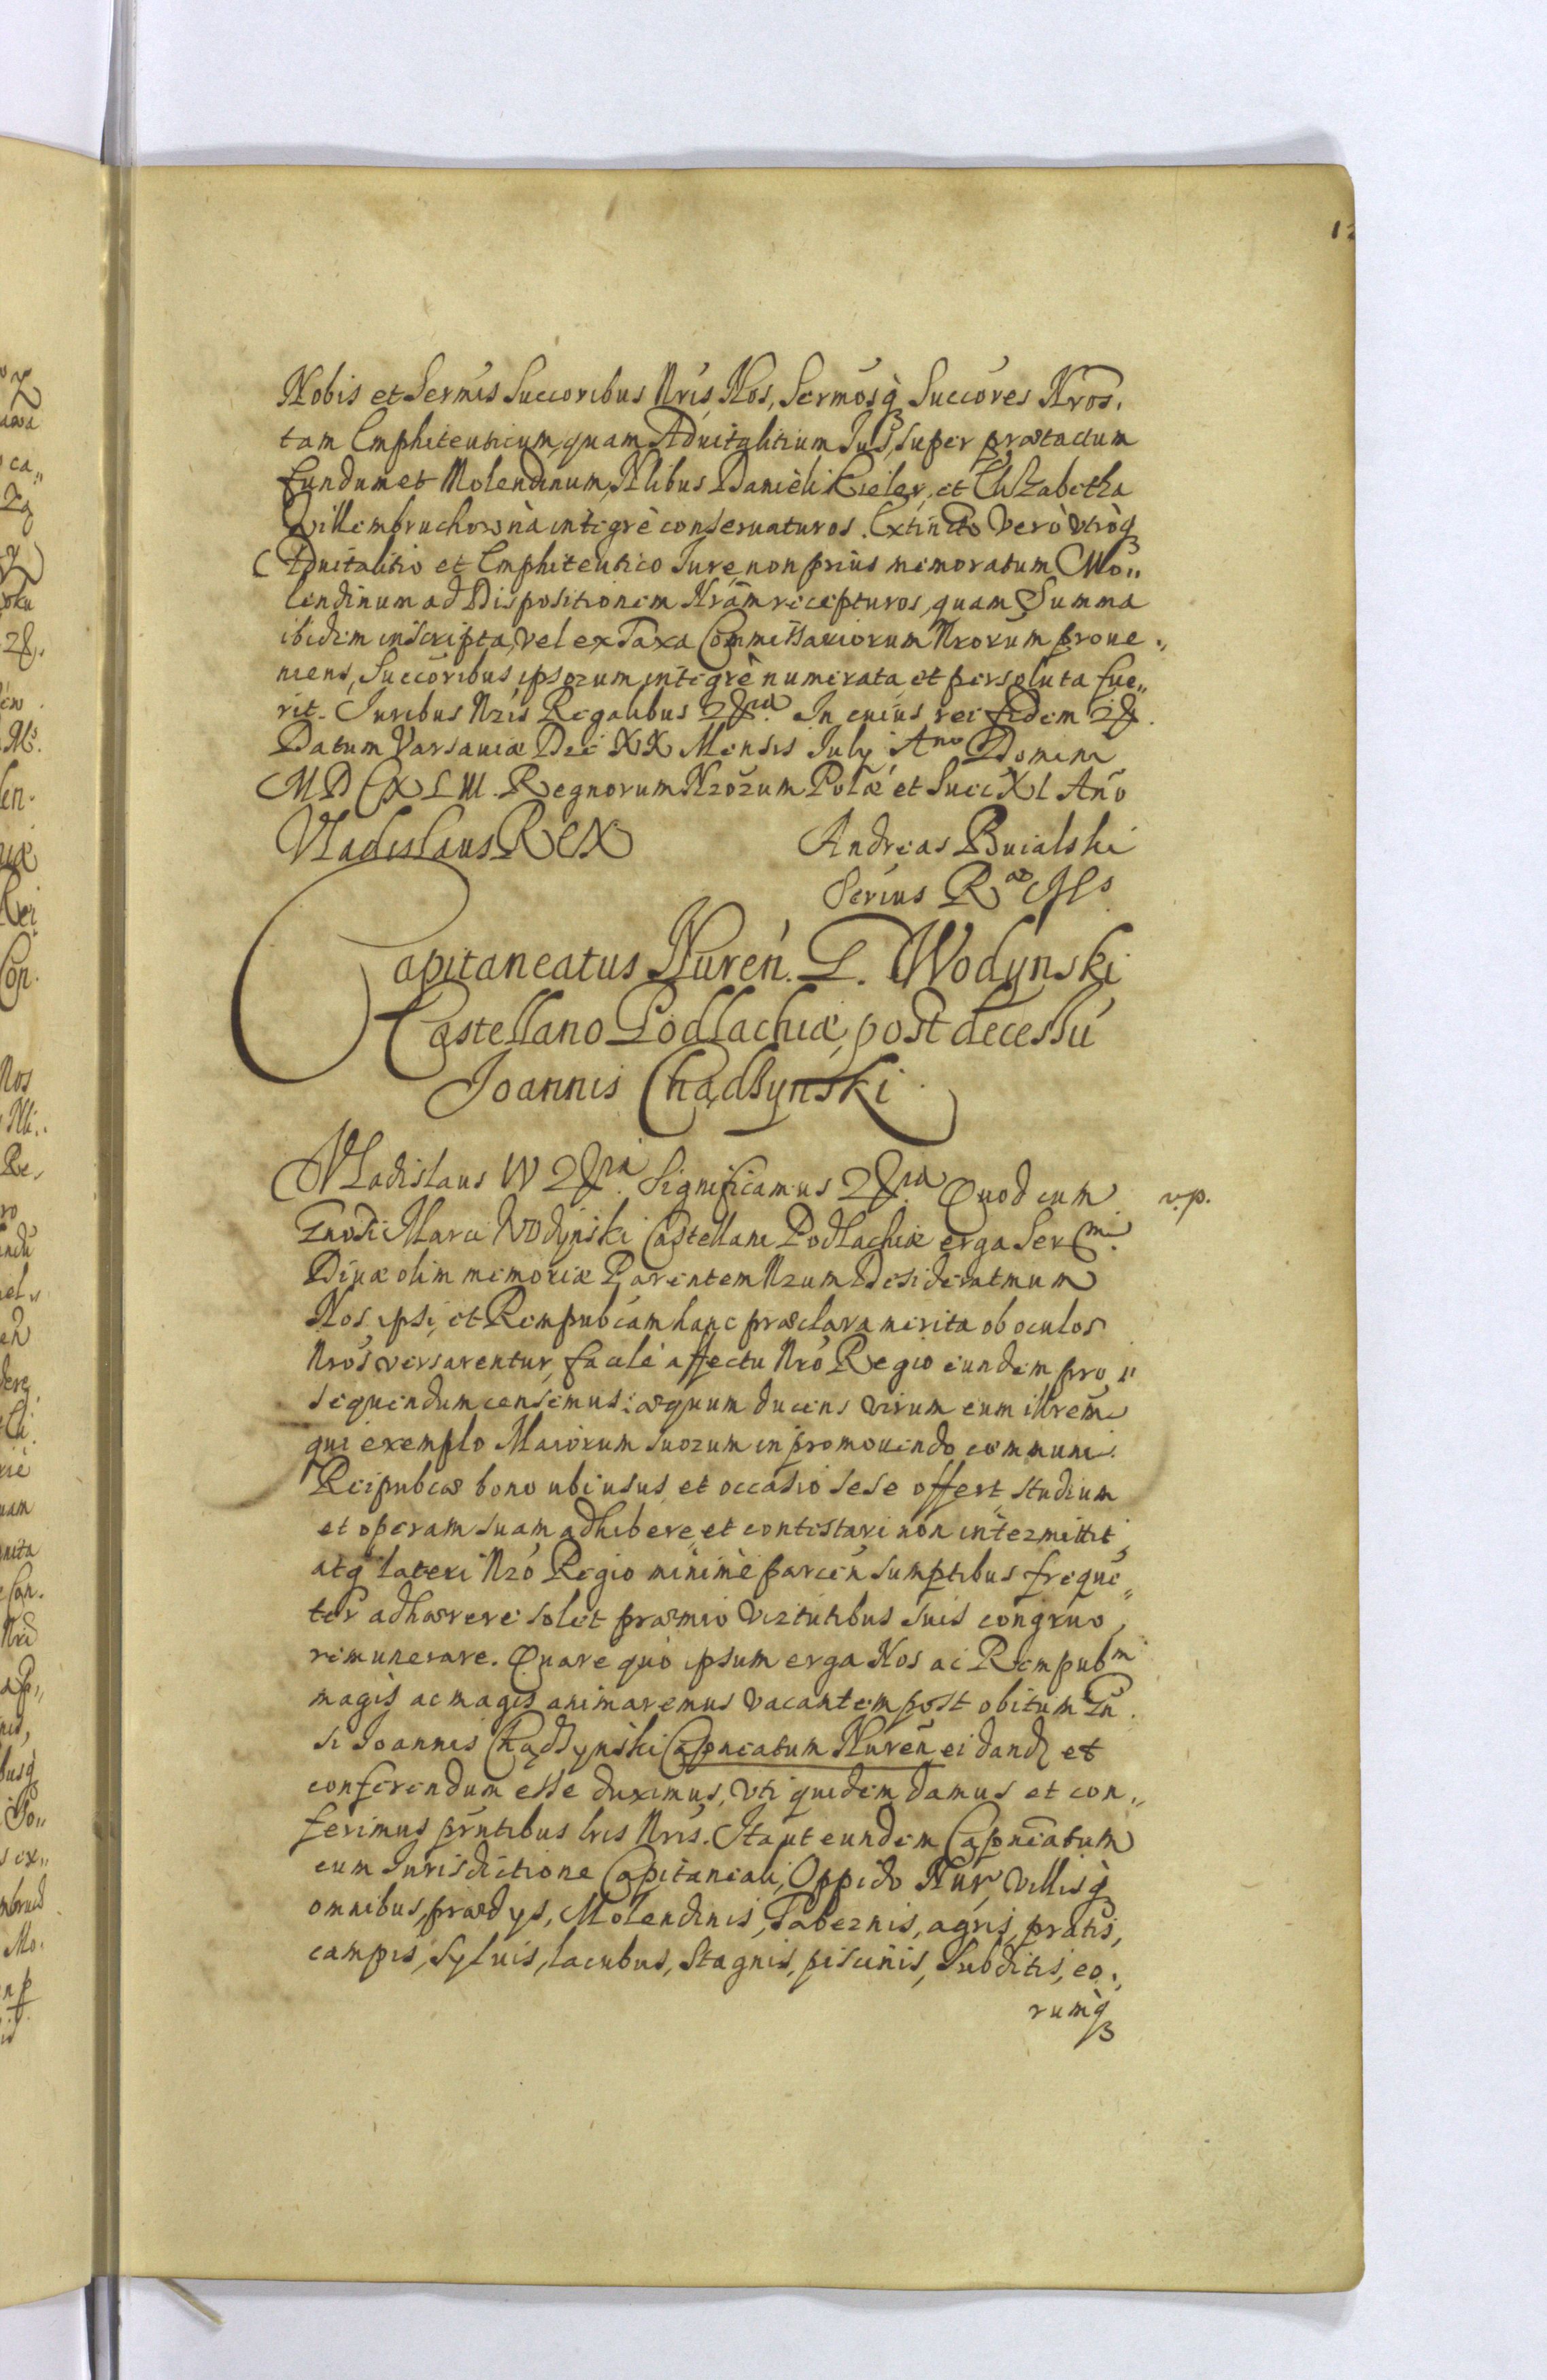 12
Nobis et Sermis Succoribus Nris, Nos, Sermosq Succores Nros,
tam Emphiteuticum, quam Aduitalitium Jus, super prætactum
fundum et Molendinum, Nlibus Danieli Kieler, et Elizabetha
Willembruchowna integrè conservaturos. Extincto verò vtròq
Aduitalitio et Emphiteutico Jure, non prius memoratum Mo„
lendinum ad Dispositionem Nrãm recepturos, quam Summa
ibidem inscripta, vel ex Taxa Commissariorum Nrorum proue„
niens, Succoribus ipsorum integrè numerata et persoluta fue„
rit. Juribus Nris Regalibus &ra. In cuius rei fidem &.
Datum Varsauiæ Die XX Mensis July Ano Domini
MDCXLIII. Regnorum Nrorum Polæ et Suec XI Año
Vladislaus REX Andreas Buialski
Serius Ræ Mts
Capitaneatus Nureń. G. Wodynski
Castellano Podlachiæ, post decessũ
Joannis Chądzynski
Vladislaus IV &ra. Significamus &ra Quod cum v.p.
Gnosi Marci Wodynski Castellani Podlachiæ erga Sermi
Diuæ olim memoriæ Parentem Nrum Desideratmum
Nos ipsi, et Rempubcam hanc præclara merita ob oculos
Nros versarentur, facile affectu Nro Regio eundem pro„
sequendum censemus: æquum ducens virum eum illrem
qui exemplo Maiorum suorum in promouendo communi
Reipubcæ bono ubi usus et occasio sese offert, studium
et operam suam adhibere, et contestari non intermittit,
atq lateri Nro Regio minimè parcen sumptibus freque„
ter adhærere solet præmio virtutibus suis congruo
remunerare. Quare quò ipsum erga Nos ac Rempubm
magis ac magis animaremus vacantem post obitum Gn
si Joannis Chądzynski Capneatum Nureń, ei dand et
conferendum esse duximus, vti quidem damus et con„
ferimus prntibus lris Nris. Ita ut eundem Capneatum
cum Jurisdictione Capitaneali, Oppido Nur, Villisq
omnibus, prædys, Molendinis, Tabernis, agris, pratis,
campis, syluis, lacubus, stagnis, piscinis, Subditis, eo„
rumq